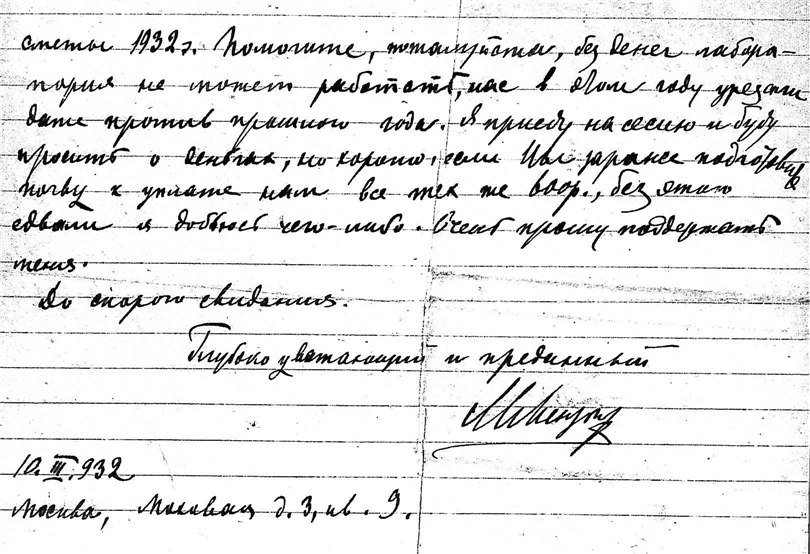 сметы 1932г. Помогите, пожалуйста, без денег лабора-
тория не может работать, нас в этом году урезали
даже против прошлого года. Я приеду на сесию и буду
просить о деньгах, но хорошо, если Вы заранее подготовите
почву к уплате нам все тех же 8000р., без этого
едвали я добьюсь чего-либо. Очень прошу поддержать
меня.
До скорого свидания.
Глубоко уважающий и преданный
10.III.932
Москва, Моховая д.3, кв. 9.